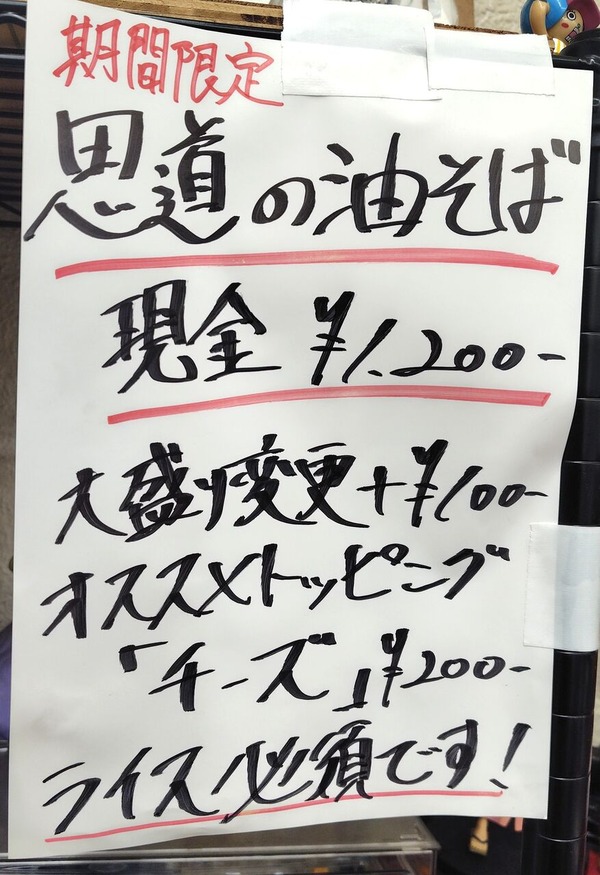 期間限定
思道の油そば
現金 ¥1.200-
大盛り変更+¥100-
オススメトッピング
「チーズ」¥200-
ライス必須です!